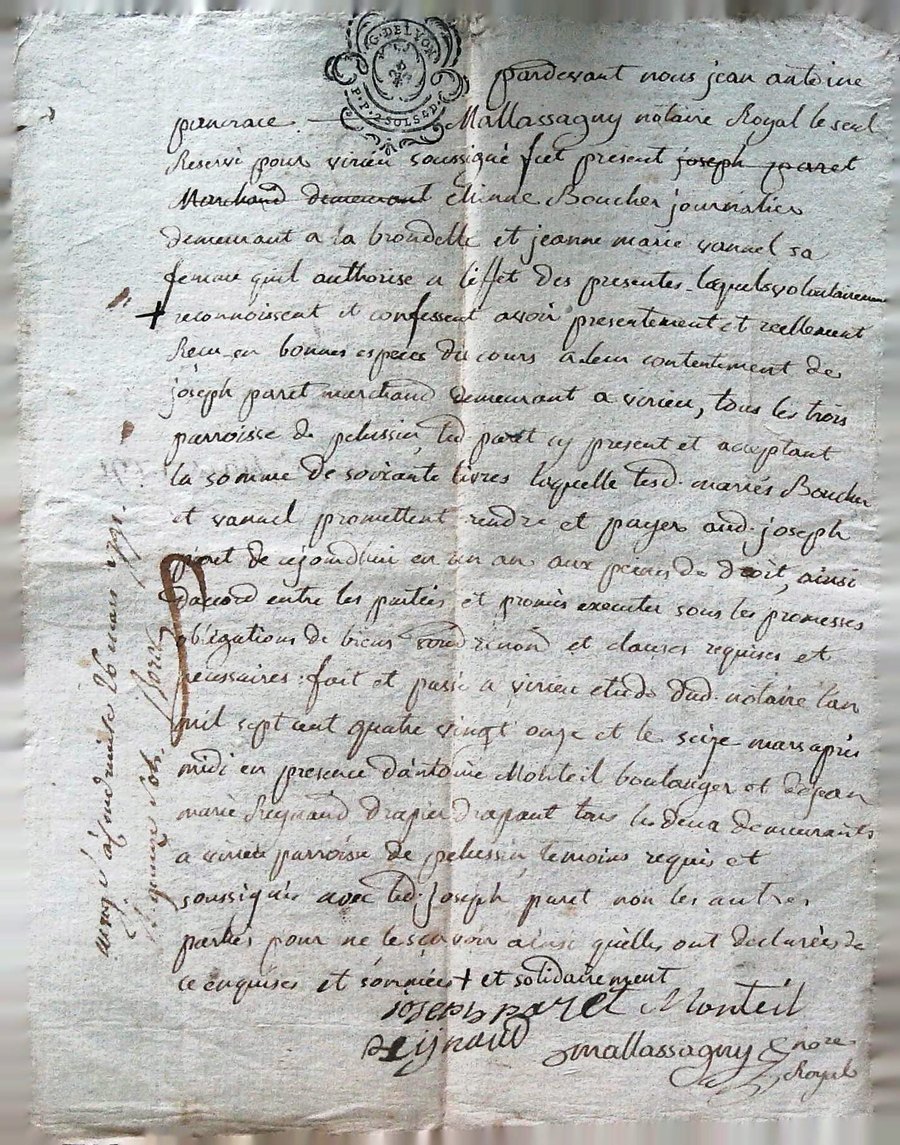 G. DE LYON
P. P. 2 SOLS 4 D.
pardevant nous jean antoine
pancrace Mallassagny notaire Royal le seul
Reservé pour virieu soussigné fut present joseph paret
Marchand demeurant etienne Boucher journalier
demeurant a la brondelle et jeanne marie vanel sa
femme quil authorise a leffet des presentes lequels volontairement
+ reconnoissent et confessent avoir presentement et reellement
Recu en bonnes especes du cours a leur contentement de
joseph paret marchand demeurant a virieu, tous les trois
parroisse de pelussin, led paret cy present et acceptant
la somme de soixante livres laquelle lesd. mariés Boucher
et vanel promettent rendre et payer aud. joseph
paret de cejourdhui en un an aux peines de droit, ainsi
daccord entre les parties et promis executer sous les promesses
obligations de biens renon et clauses requises et
necessaires. fait et passé a virieu etude dud. notaire lan
mil sept cent quatre vingt onze et le seize mars apres
midi en presence dantoine Monteil boulanger et de jean
marie Reynaud drapier drapant tous les deux demeurants
a virieu parroisse de pelussin, temoins requis et
soussignés avec led. joseph paret non les autres
parties pour ne le scavoir ainsi quelles ont declarées de
ce enquises et sommées + et solidairement
joseph paret Monteil
Reijnaud Mallassagny nore
Royal
26 mars 1791.
quinze sols.